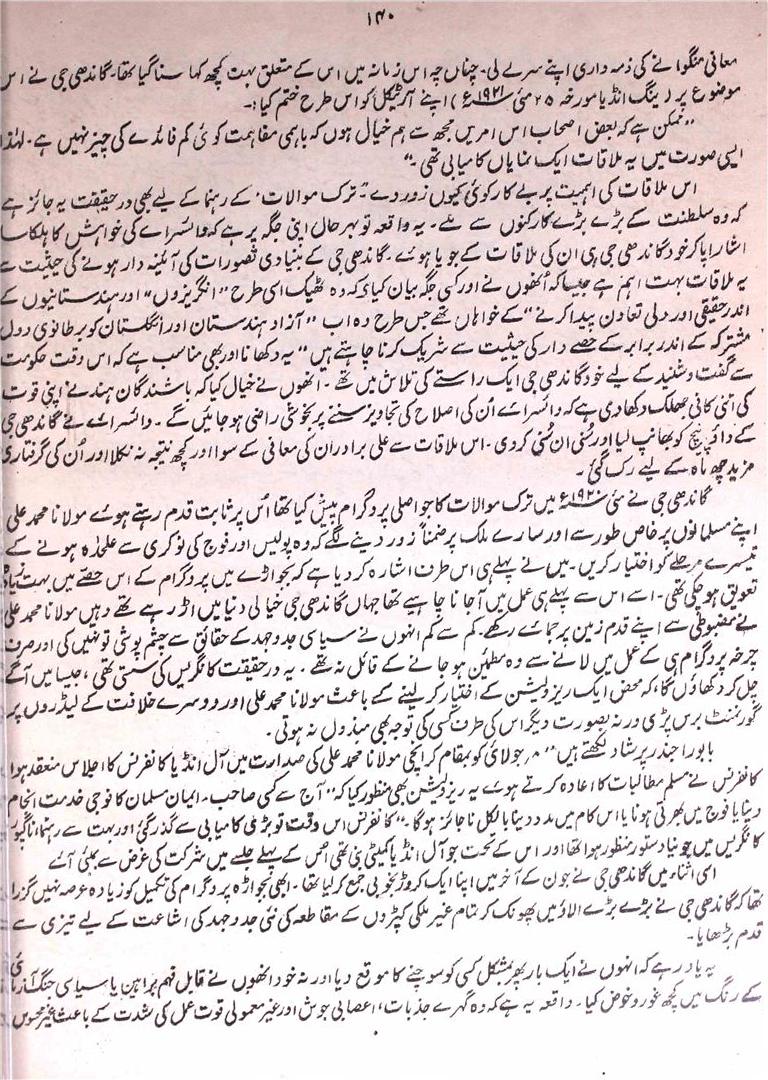 ۱۴۰
معافی منگوانے کی ذمہ داری اپنے سرے لی۔ چناں چہ اس زمانہ میں اس کے متعلق بہت کچھ کہا سنا گیا تھا۔ گاندھی جی نے اس
موضوع پر (ینگ انڈیا مورخہ ۲۵ مئی ۱۹۲۱ء) اپنے آرٹیکل کو اس طرح ختم کیا:۔
”ممکن ہے کہ بعض اصحاب اس امر میں مجھ سے ہم خیال ہوں کہ باہمی مفاہمت کوئی کم فائدے کی چیز نہیں ہے۔ لہٰذا
ایسی صورت میں یہ ملاقات ایک نمایاں کامیابی تھی۔“
اس ملاقات کی اہمیت پر بے کار کوئی کیوں زور دے۔ ”ترک موالات“ کے رہنما کے لیے بھی درحقیقت یہ جائز ہے
کہ وہ سلطنت کے بڑے بڑے کارکنوں سے ملے۔ یہ واقعہ تو بہر حال اپنی جگہ پر ہے کہ وائسراے کی خواہش کا ہلکا سا
اشارا پا کر خود گاندھی جی ہی ان کی ملاقات کے جویا ہوے۔ گاندھی جی کے بنیادی تصورات کی آئینہ دار ہونے کی حیثیت سے
یہ ملاقات بہت اہم ہے جیسا کہ اُنھوں نے اور کسی جگہ بیان کیا ہے کہ وہ ٹھیک اسی طرح ”انگریزوں“ اور ہندستانیوں کے
اندر حقیقی اور دلی تعاون پیدا کرنے“ کے خواہاں تھے جس طرح وہ اب ”آزاد ہندستان اور انگلستان کو برطانوی دول
مشترکہ کے اندر برابر کے حصے دار کی حیثیت سے شریک کرنا چاہتے ہیں“ یہ دکھانا اور بھی مناسب ہے کہ اس وقت حکومت
سے گفت و شنید کے لیے خود گاندھی جی ایک راستے کی تلاش میں تھے۔ انھوں نے خیال کیا کہ باشندگان ہند نے اپنی قوت
کی اتنی کافی جھلک دکھا دی ہے کہ وائسراے اُن کی اصلاح کی تجاویز سننے پر بخوشی راضی ہو جائیں گے۔ وائسراے نے گاندھی جی
کے داؤ پیچ کو بھانپ لیا اور سُنی ان سُنی کر دی۔ اس ملاقات سے علی برادران کی معافی کے سوا اور کچھ نتیجہ نہ نکلا اور اُن کی گرفتاری
مزید چھ ماہ کے لیے رک گئی۔
گاندھی جی نے مئی ۱۹۲۰ء میں ترک موالات کا جو اصلی پروگرام پیش کیا تھا اُس پر ثابت قدم رہتے ہوے مولانا محمد علی
اپنے مسلمانوں پر خاص طور سے اور سارے ملک پر ضمناً زور دینے لگے کہ وہ پولیس اور فوج کی نوکری سے علیحدہ ہونے کے
تیسرے مرحلے کو اختیار کریں۔ میں نے پہلے ہی اس طرف اشارہ کر دیا ہے کہ بجواڑے میں پروگرام کے اس حصّے میں بہت زیادہ
تعویق ہو چکی تھی۔ اسے اس سے پہلے ہی عمل میں آ جانا چاہیے تھا جہاں گاندھی جی خیالی دنیا میں اڑ رہے تھے وہیں مولانا محمد علی
نے مضبوطی سے اپنے قدم زمین پر جمائے رکھے۔ کم سے کم انہوں نے سیاسی جدوجہد کے حقائق سے چشم پوشی تو نہیں کی اور صرف
چرخہ پروگرام ہی کے عمل میں لانے سے وہ مطمئن ہو جانے کے قائل نہ تھے۔ یہ درحقیقت کانگریس کی سستی تھی، جیسا میں آگے
چل کر دکھاؤں گا، کہ محض ایک ریزولیشن کے اختیار کر لینے کے باعث مولانا محمد علی اور دوسرے خلافت کے لیڈروں پر
گورنمنٹ برس پڑی ورنہ بصورت دیگر اس کی طرف کسی کی توجہ بھی مبذول نہ ہوتی۔
بابو راجندر پرشاد لکھتے ہیں ”۸ جولائی کو بمقام کراچی مولانا محمد علی کی صدارت میں آل انڈیا کانفرنس کا اجلاس منعقد ہوا
کانفرنس نے مسلم مطالبات کا اعادہ کرتے ہوے یہ ریزولیشن بھی منظور کیا کہ ”آج سے کسی صاحب ایمان مسلمان کا فوجی خدمت انجام
دینا یا فوج میں بھرتی ہونا یا اس کام میں مدد دینا بالکل ناجائز ہوگا۔“ کانفرنس اس وقت تو بڑی کامیابی سے گذر گئی اور بہت سے رہنما ناگپور
کانگریس میں جو نیا دستور منظور ہوا تھا اور اس کے تحت جو آل انڈیا کمیٹی بنی تھی اُس کے پہلے جلسے میں شرکت کی غرض سے بمبئی آئے
اسی اثناء میں گاندھی جی نے جون کے آخر میں اپنا ایک کروڑ بخوبی جمع کر لیا تھا۔ ابھی بجواڑہ پروگرام کی تکمیل کو زیادہ عرصہ نہیں گزرا
تھا کہ گاندھی جی نے بڑے بڑے الاؤ میں پھونک کر تمام غیر ملکی کپڑوں کے مقاطعہ کی نئی جدوجہد کی اشاعت کے لیے تیزی سے
قدم بڑھایا۔
یہ یاد رہے کہ انہوں نے ایک بار پھر بمشکل کسی کو سوچنے کا موقع دیا اور نہ خود انھوں نے قابل فہم براہین یا سیاسی جنگ آزمائی
کے رنگ میں کچھ غور و خوض کیا۔ واقعہ یہ ہے کہ وہ گہرے جذبات، اعصابی جوش اور غیر معمولی قوت عمل کی شدت کے باعث غیر محسوس